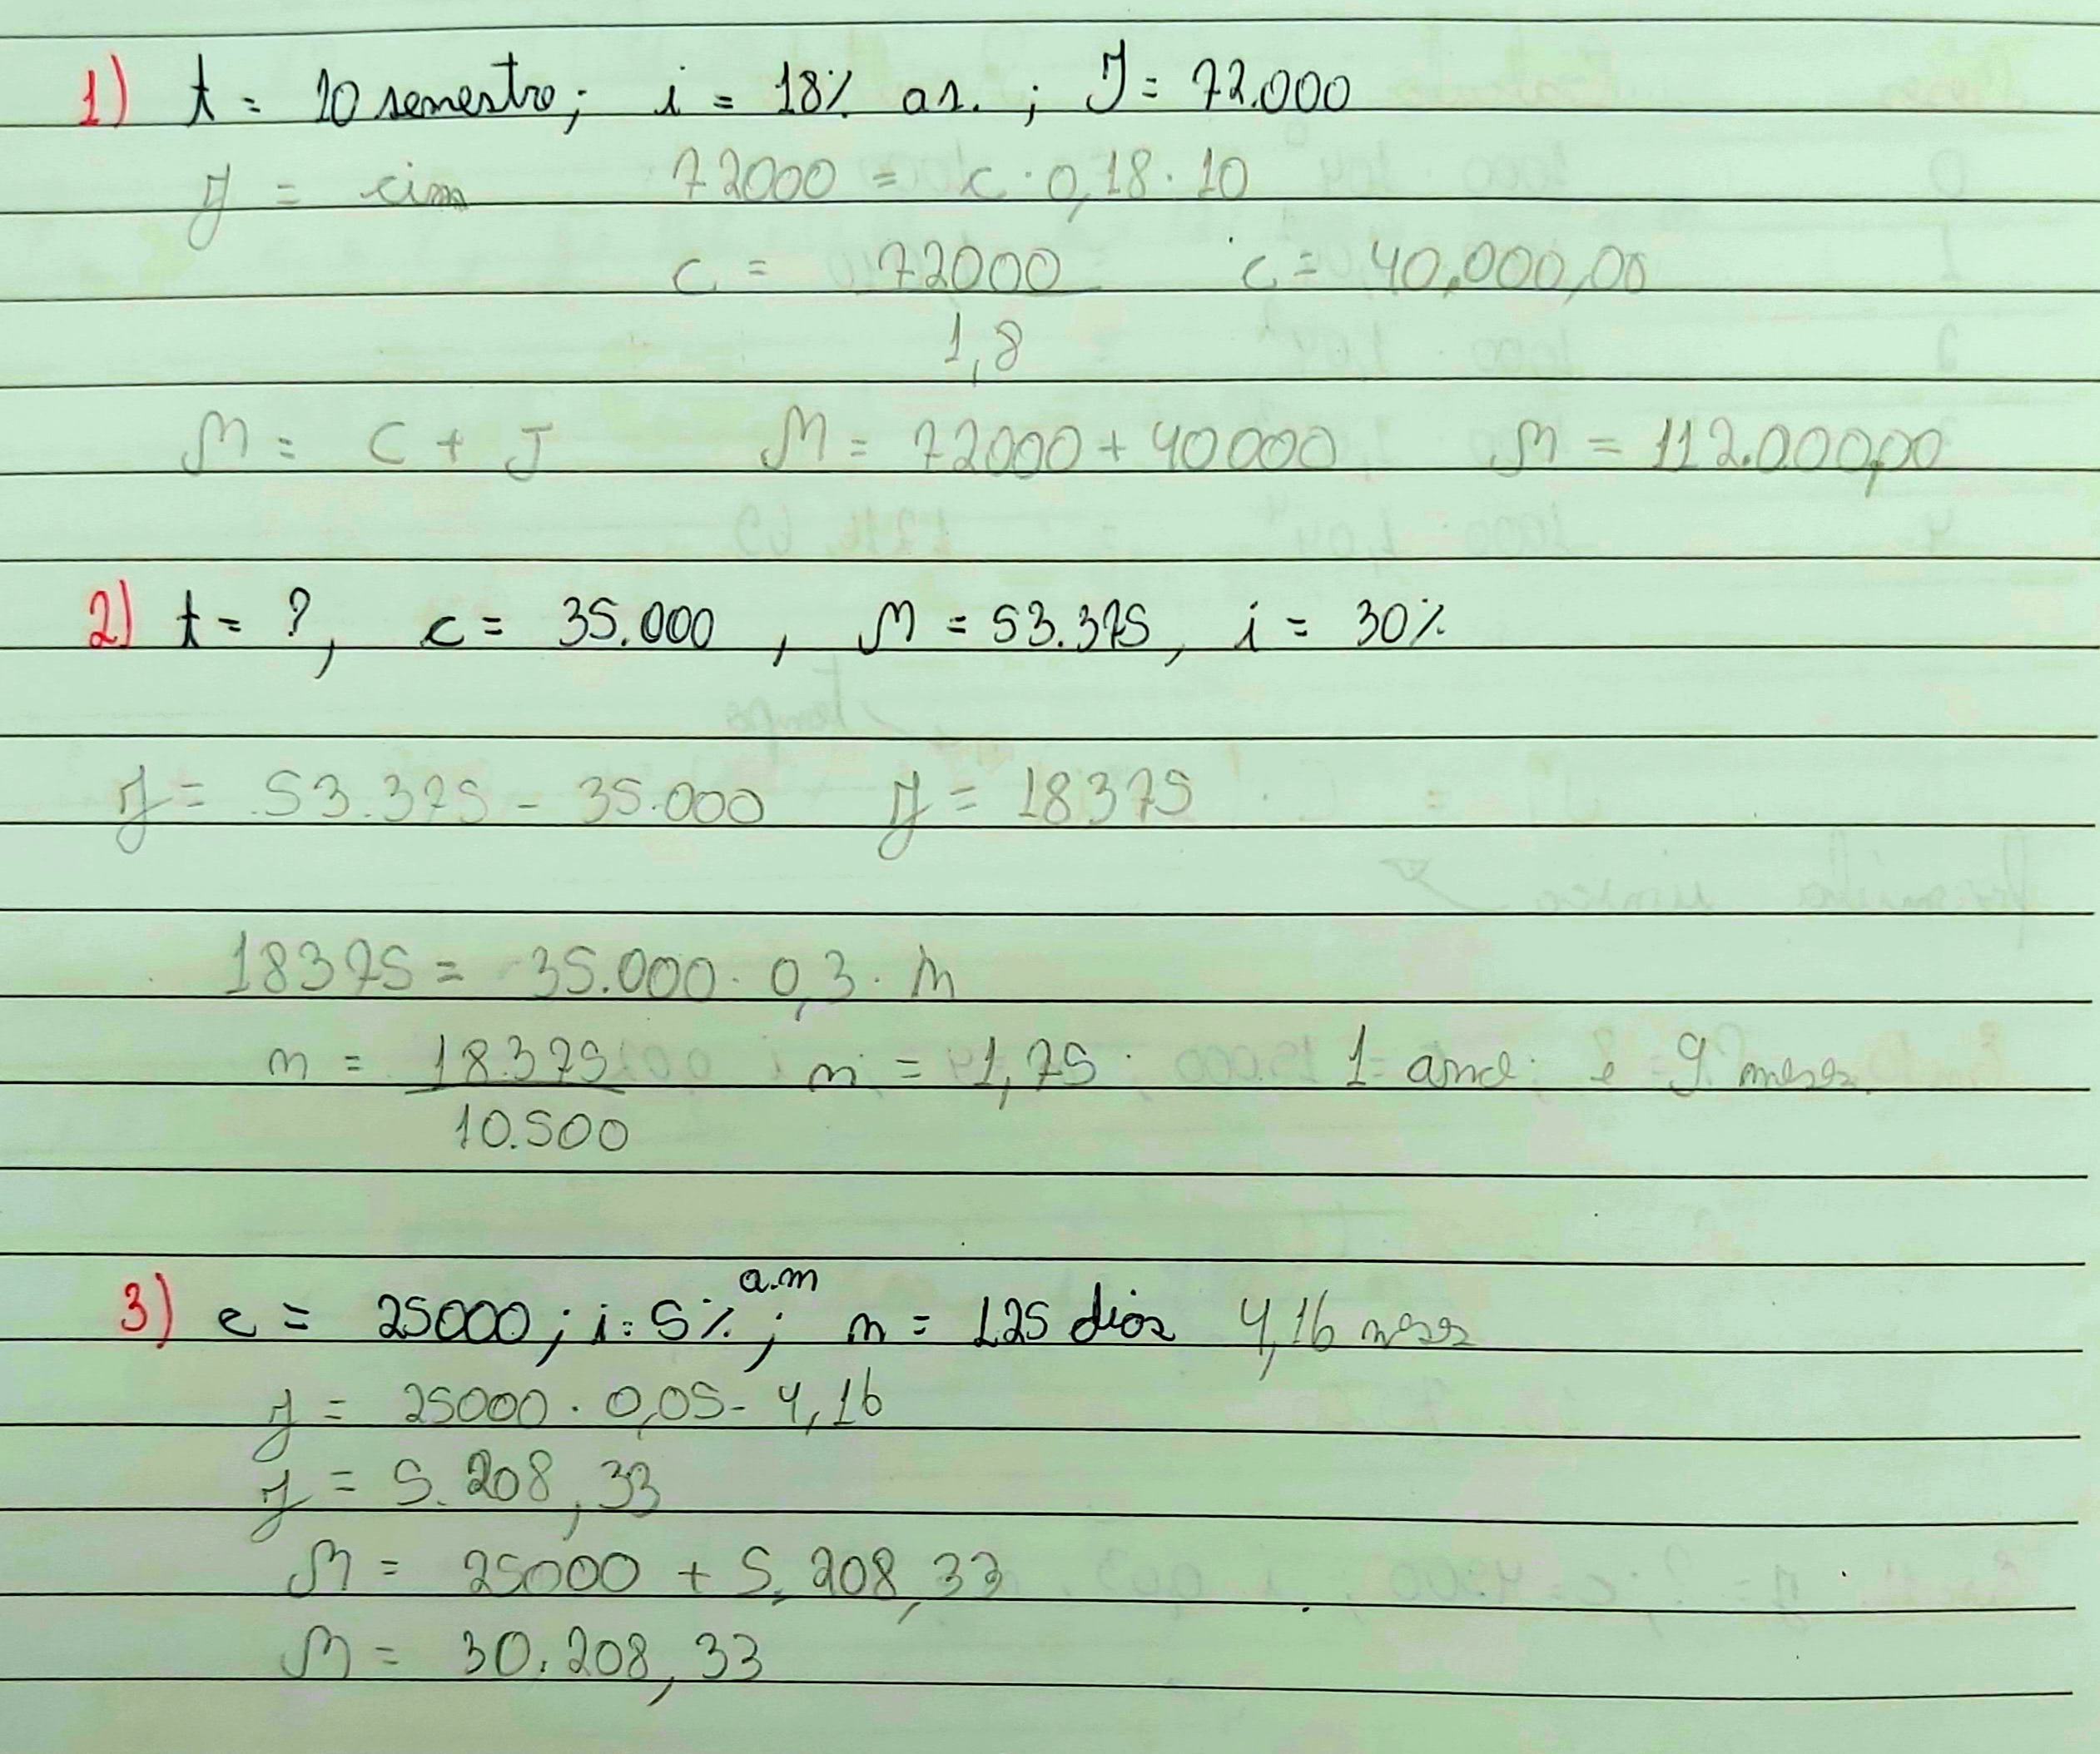 1) t = 10 semestre; i = 18% a.s. ; J = 72.000
J = cin 72000 = c · 0,18 · 10
c = 72000 c = 40.000,00
1,8
M = C + J M = 72000 + 40000 M = 112.000,00
2) t = ?, c = 35.000 , M = 53.375, i = 30%
J = 53.375 - 35.000 J = 18375
18375 = 35.000 · 0,3 · n
n = 18.375 n = 1,75 1 ano e 9 meses
10.500
3) c = 25000; i = 5% a.m; n = 125 dias 4,16 meses
J = 25000 · 0,05 · 4,16
J = 5.208,33
M = 25000 + 5.208,33
M = 30.208,33